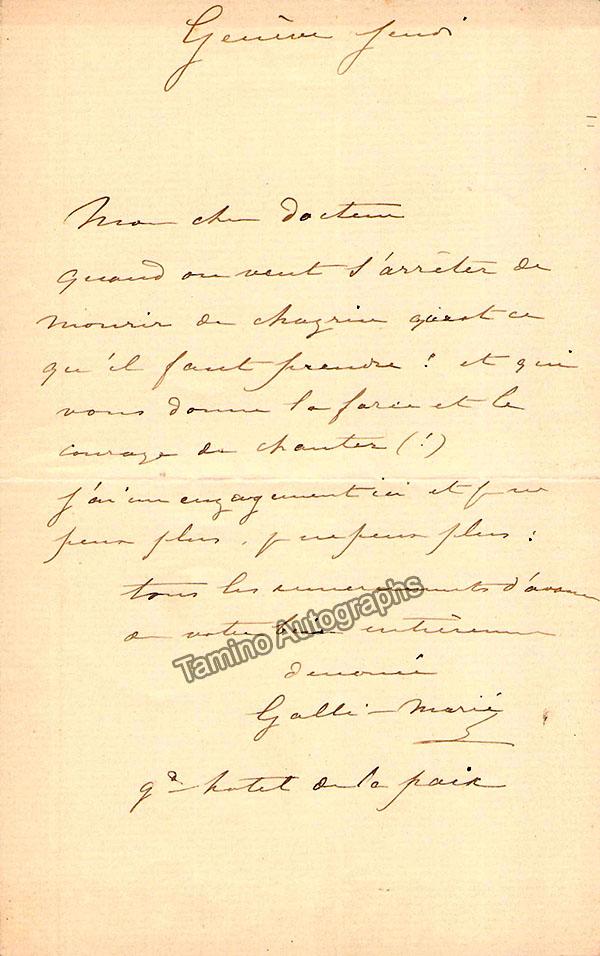 Genève jeudi
Mon cher docteur
quand on veut s'arrêter de
mourir de chagrin qu'est ce
qu'il faut prendre ! et qui
vous donne la force et le
courage de chanter (!)
j'ai un engagement ici et je ne
peux plus, je ne peux plus :
tous les remerciements d'avance
de votre bien entièrement
dévouée
Galli-Marié
gd hotel de la paix
Tamino Autographs